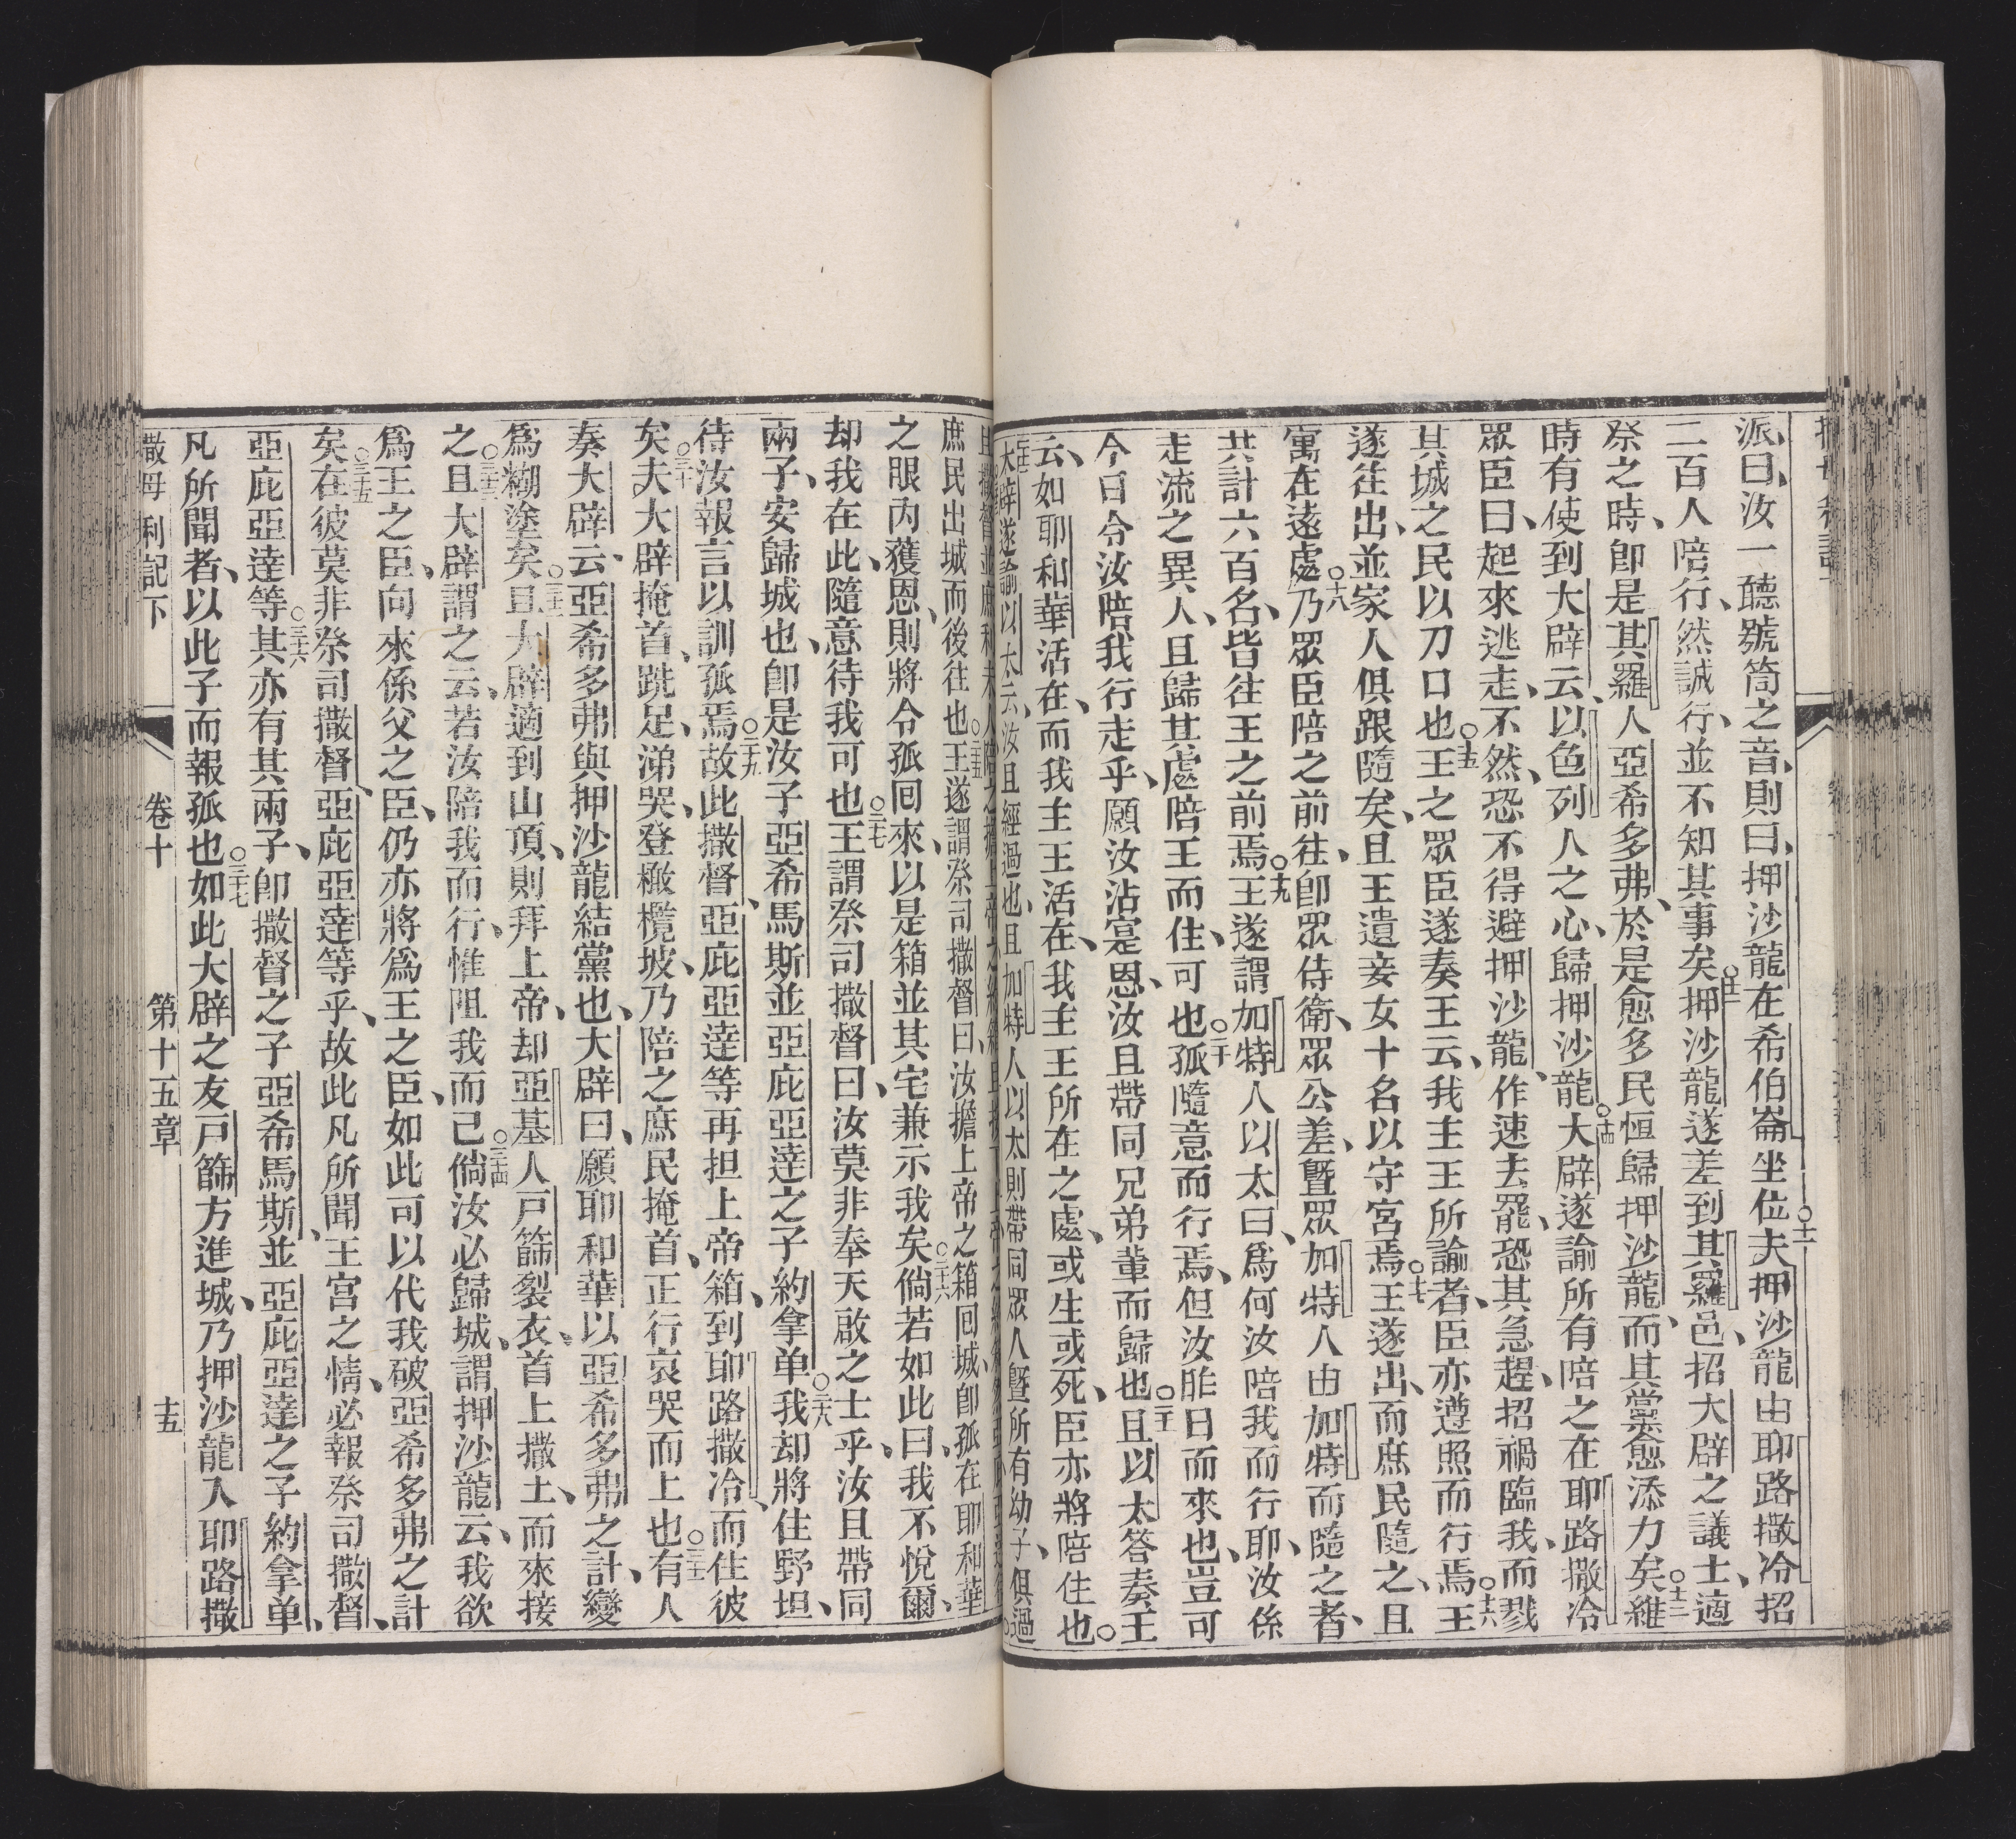 派、曰、汝一聽號筒之音、則曰、押沙龍在希伯崙坐位、○十一夫押沙龍由耶路撒冷招
二百人陪行、然誠行、並不知其事矣、○十二押沙龍遂差到其羅邑、招大辟之議士、適
祭之時、卽是其羅人亞希多弗、於是愈多民恒歸押沙龍、而其黨愈添力矣、○十三維
時有使到大辟云、以色列人之心、歸押沙龍、○十四大辟遂諭所有陪之在耶路撒冷
眾臣曰、起來逃走、不然、恐不得避押沙龍、作速去罷、恐其急趕、招禍臨我、而戮
其城之民以刀口也、○十五王之眾臣遂奏王云、我主王所諭者、臣亦遵照而行焉、○十六王
遂往出、並家人俱跟隨矣、且王遺妾女十名以守宮焉、○十七王遂出、而庶民隨之、且
寓在遠處、○十八乃眾臣陪之前往、卽眾侍衛、眾公差、曁眾加特人由加特而隨之者、
共計六百名、皆往王之前焉、○十九王遂謂加特人以太曰、爲何汝陪我而行耶、汝係
走流之異人、且歸其處陪王而住、可也、○二十孤隨意而行焉、但汝昨日而來也、豈可
今日令汝陪我行走乎、願汝沾寔恩、汝且帶同兄弟輩而歸也、○二十一且以太答奏王
云、如耶和華活在、而我主王活在、我主王所在之處、或生或死、臣亦將陪住也、○二十二
大辟遂諭以太云、汝且經過也、且加特人以太則帶同眾人曁所有幼子、俱過
庶民出城而後往也、○二十五王遂謂祭司撒督曰、汝擔上帝之箱回城、卽孤在耶和華
之眼內獲恩、則將令孤回來、以是箱並其宅兼示我矣、○二十六倘若如此曰、我不悅爾、
却我在此、隨意待我可也、○二十七王謂祭司撒督曰、汝莫非奉天啟之士乎、汝且帶同
兩子、安歸城也、卽是汝子亞希馬斯並亞庇亞達之子約拿单、○二十八我却將住野坦、
待汝報言以訓孤焉、○二十九故此撒督、亞庇亞達等再担上帝箱、到耶路撒冷、而住彼
矣、○三十夫大辟掩首、跣足、涕哭、登橄欖坡、乃陪之庶民掩首、正行哀哭而上也、○三十一有人
奏大辟云、亞希多弗與押沙龍結黨也、大辟曰、願耶和華以亞希多弗之計、變
爲糊塗矣、○三十二且大辟適到山頂、則拜上帝、却亞基人戸篩裂衣、首上撒土、而來接
之、○三十三且大辟謂之云、若汝陪我而行、惟阻我而已、○三十四倘汝必歸城、謂押沙龍云、我欲
爲王之臣、向來係父之臣、仍亦將爲王之臣、如此可以代我破亞希多弗之計
矣、○三十五在彼莫非祭司撒督、亞庇亞達等乎、故此凡所聞王宮之情、必報祭司撒督、
亞庇亞達等、○三十六其亦有其兩子、卽撒督之子亞希馬斯、並亞庇亞達之子約拿单、
凡所聞者、以此子而報孤也、○三十七如此大辟之友戸篩方進城、乃押沙龍入耶路撒
撒母耳記下　卷十　第十五章　十五